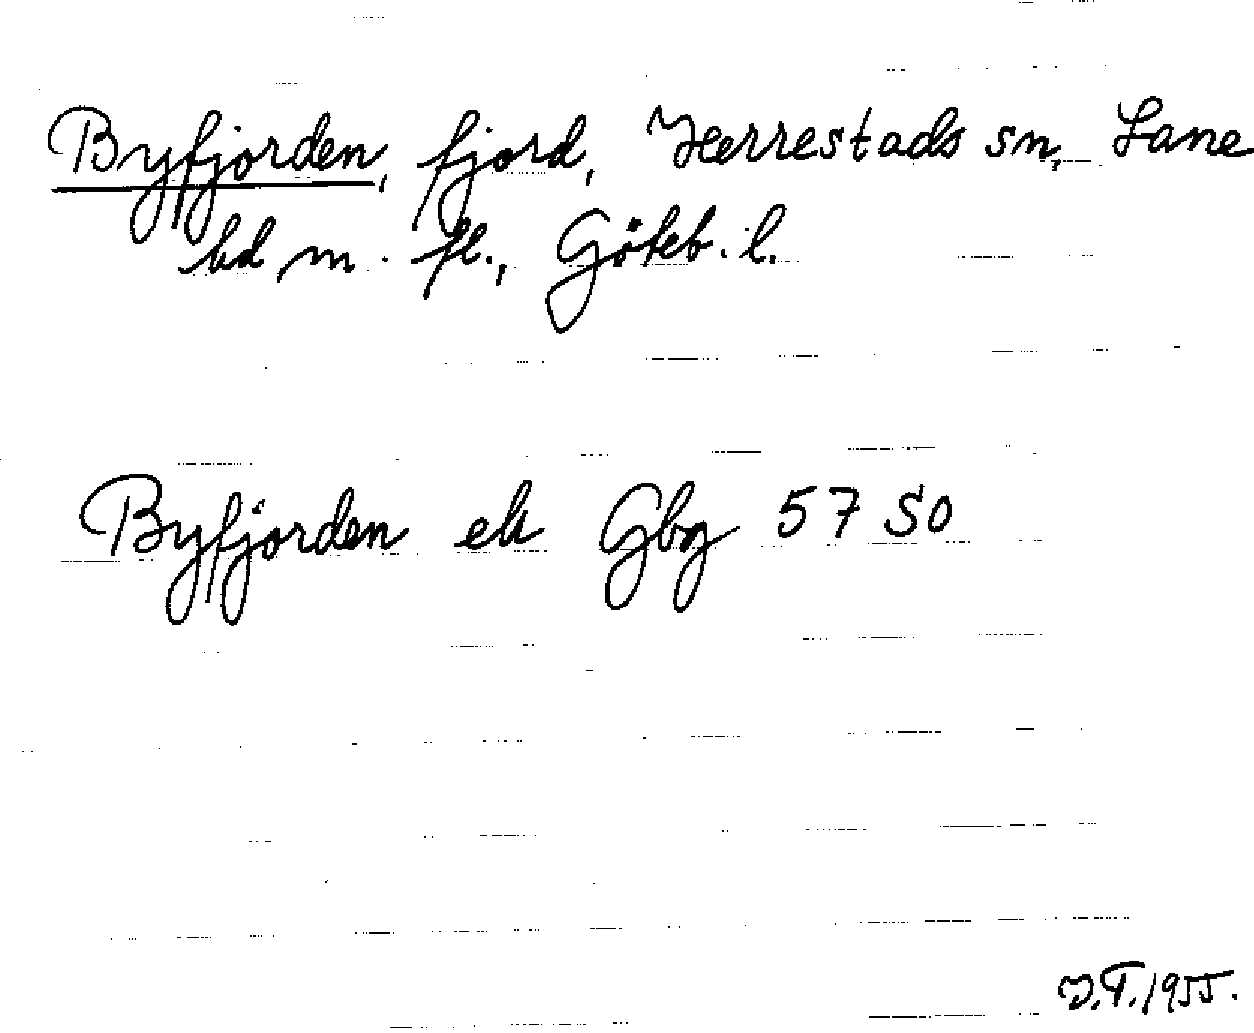 Byfjorden, fjord, Herrestads sn, Lane
hd m. fl., Göteb. l.
Byfjorden ek Gbg 57 SO
J.T. 1955.